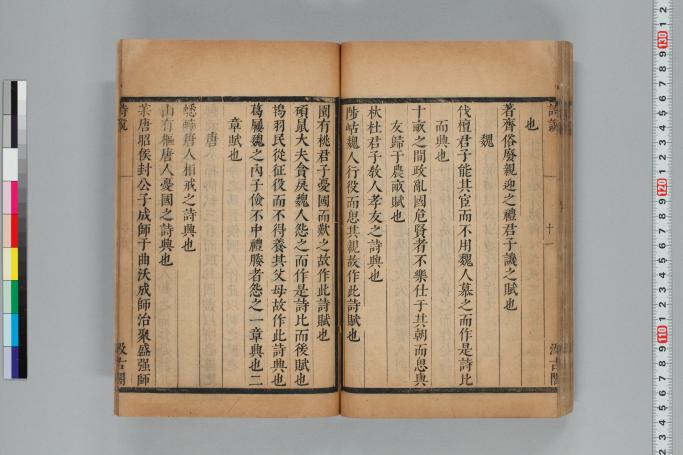 詩說
十一
汲古閣
也
著齊俗廢親迎之禮君子譏之賦也
魏
伐檀君子能其官而不用魏人慕之而作是詩比
而興也
十畝之間政亂國危賢者不樂仕于其朝而思與
友歸于農畝賦也
杕杜君子敎人孝友之詩興也
陟岵魏人行役而思其親故作此詩賦也
園有桃君子憂國而歎之故作此詩賦也
碩鼠大夫貪戾魏人怨之而作是詩比而後賦也
鴇羽民從征役而不得養其父母故作此詩興也
葛屨魏之內子儉不中禮媵者怨之一章興也二
章賦也
唐
蟋蟀唐人相戒之詩興也
山有樞唐人憂國之詩興也
唐昭侯封公子成師于曲沃成師治聚盛强師
詩說
汲古閣
2
1
130
9
8
7
6
5
4
3
2
1
120
9
8
7
6
5
4
3
2
1
110
9
8
7
6
5
4
3
2